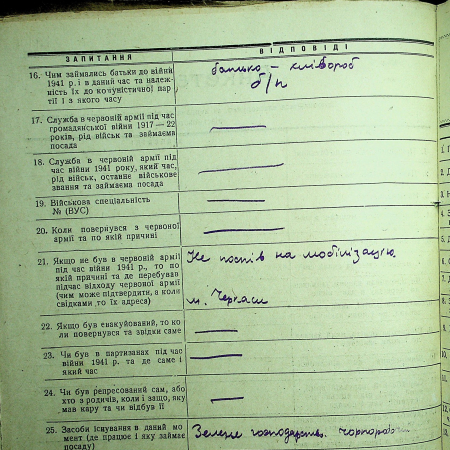 ЗАПИТАННЯ ВІДПОВІДІ
16. Чим займались батьки до війни
1941 р. і в даний час та належ-
ність їх до комуністичної пар-
тії і з якого часу
батько – хлібороб
б/п
17. Служба в червоній армії під час
громадянської війни 1917—22
років, рід військ та займаєма
посада
18. Служба в червоній армії під
час війни 1941 року, який час,
рід військ, останнє військове
звання та займаєма посада
19. Військова спеціальність
№ (ВУС)
20. Коли повернувся з червоної
армії та по якій причині
21. Якщо не був в червоній армії
під час війни 1941 р., то по
якій причині та де перебував
підчас відходу червоної армії
(чим може підтвердити, а коли
свідками, то їх адреса)
Не поспів на мобілізацію.
м. Черкаси
22. Якщо був евакуйований, то ко-
ли повернувся та звідки саме
23. Чи був в партизанах під час
війни 1941 р. та де саме і
який час
24. Чи був репресований сам, або
хто з родичів, коли і защо, яку
мав кару та чи відбув її
25. Засоби існування в даний мо-
мент (де працює і яку займає
посаду)
Зелене господарств.